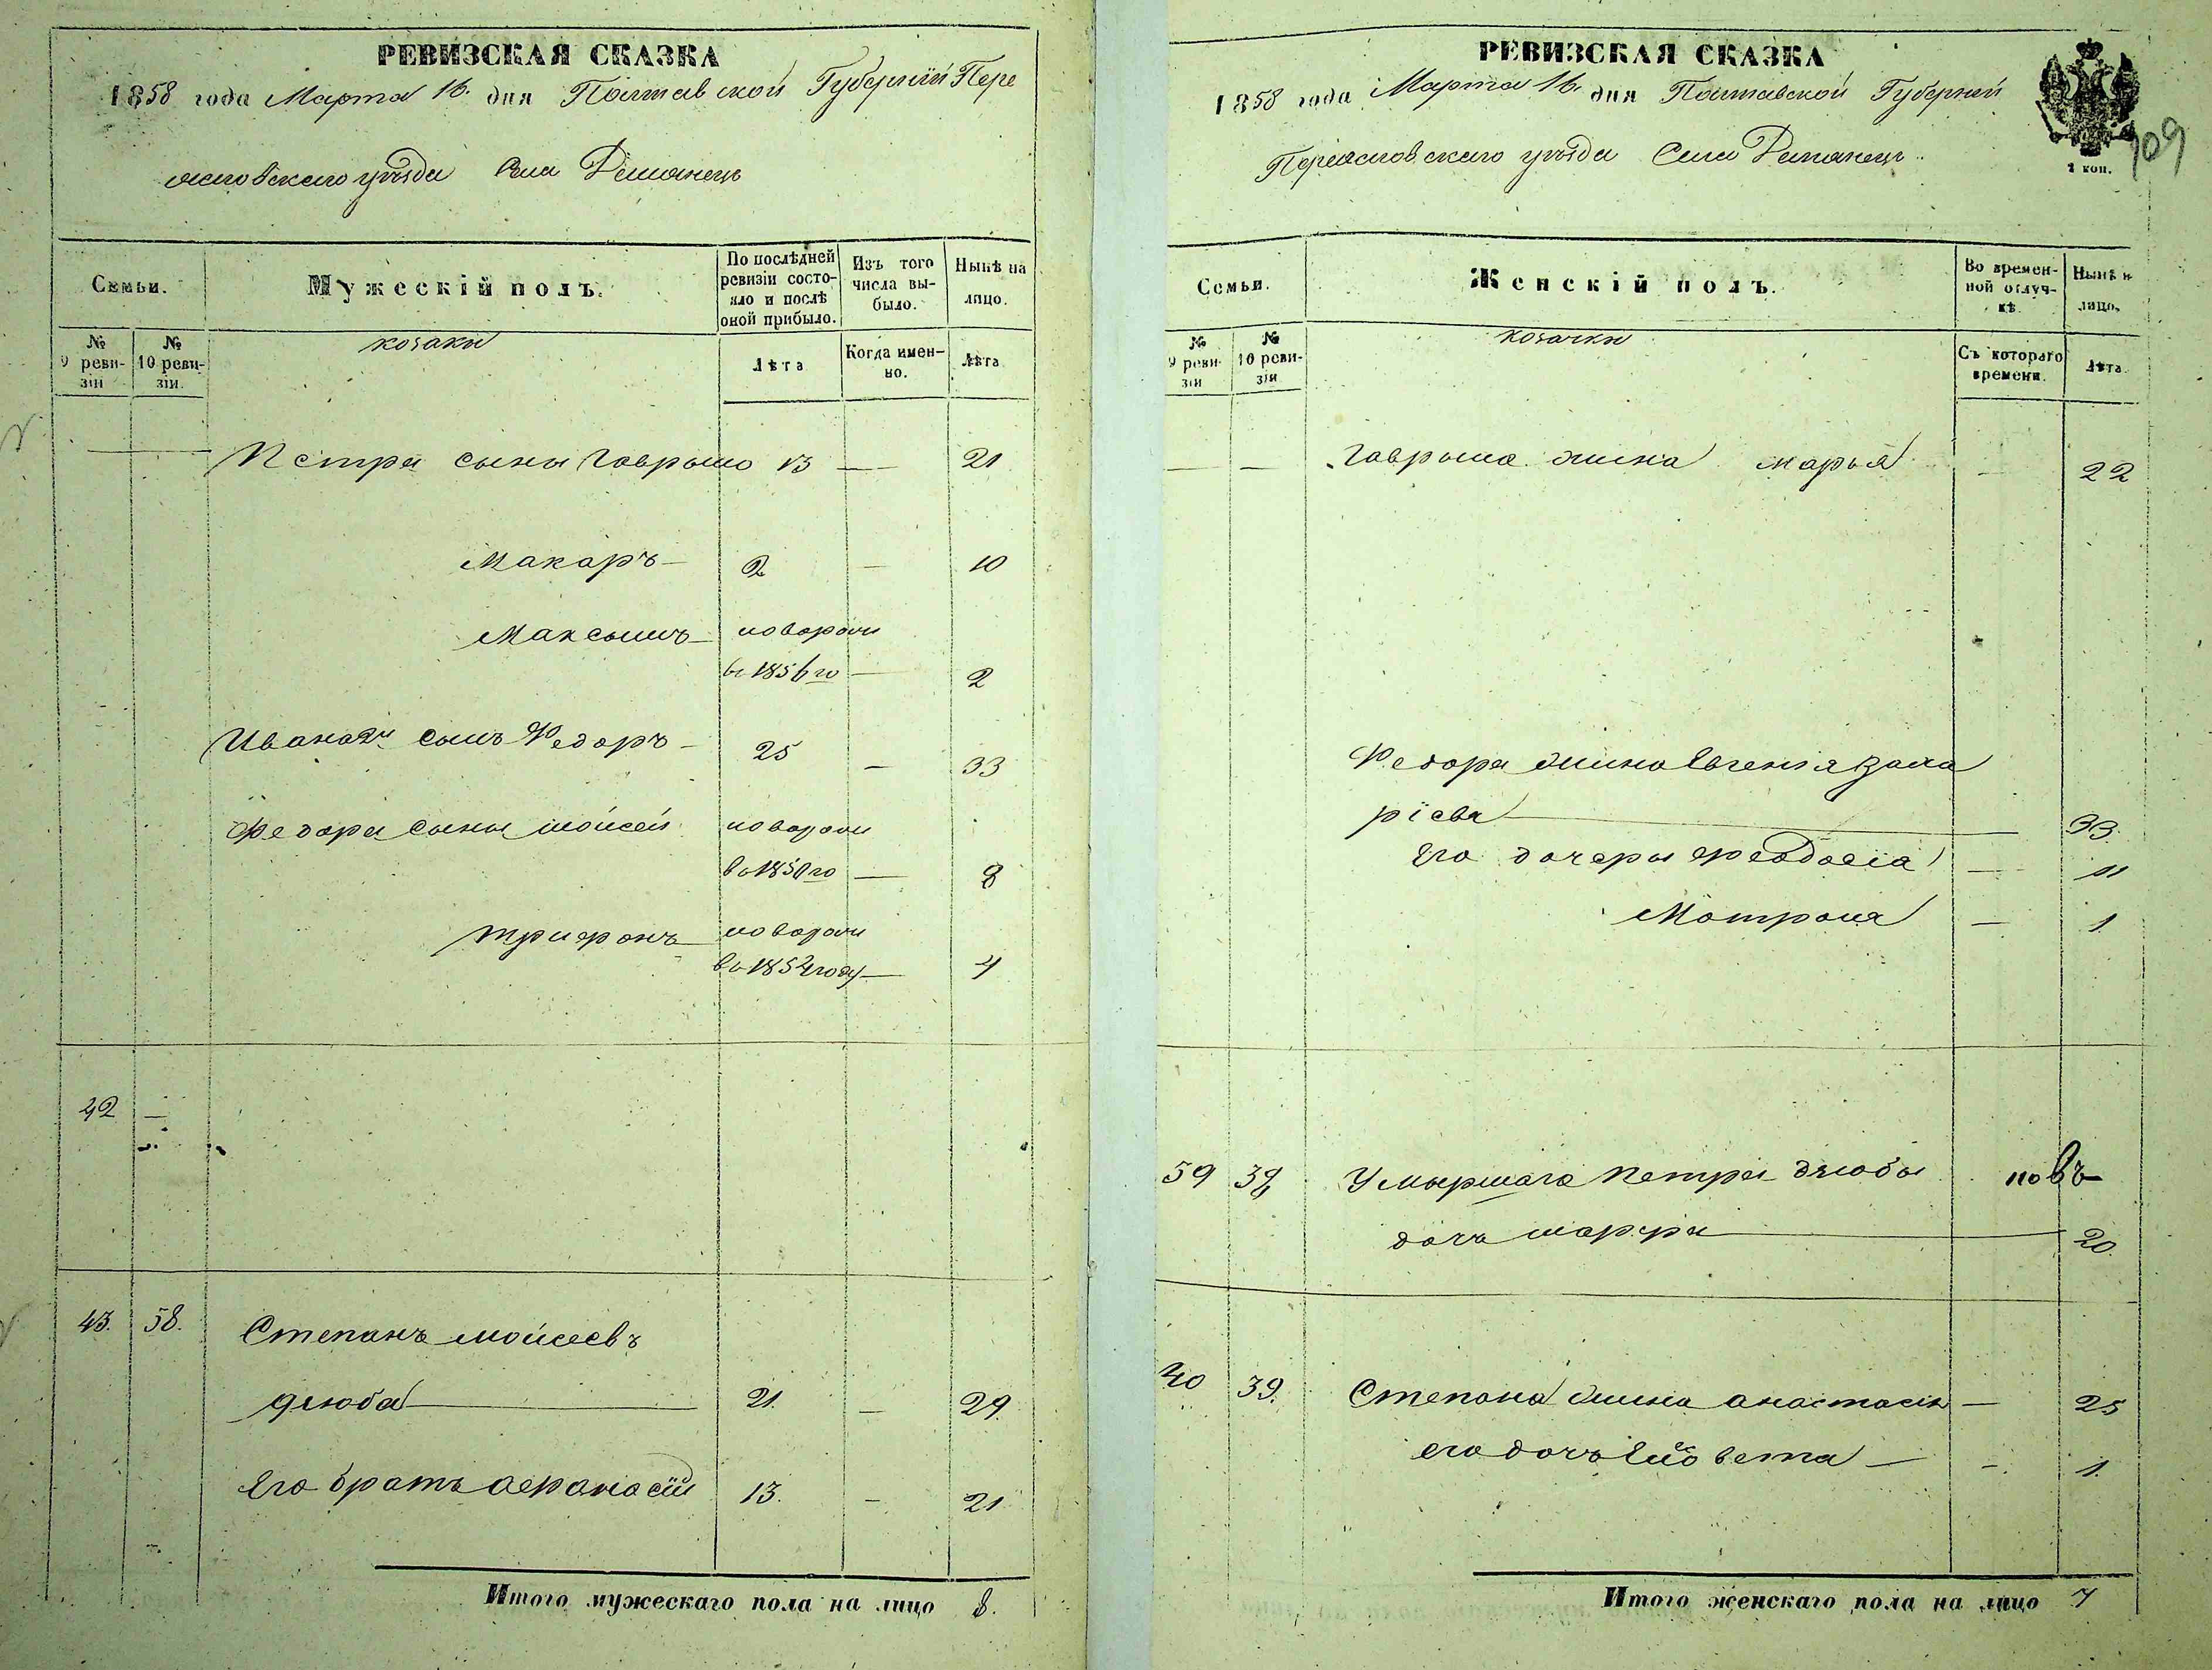 РЕВИЗСКАЯ СКАЗКА
1858 года Марта 16. дня Полтавской Губерніи Пере
яславскаго уѣзда Села Демянець
Семьи.
Мужескій полъ.
По послѣдней ревизіи состояло и послѣ оной прибыло.
Изъ того числа выбыло.
Нынѣ на лицо.
№ 9 ревизіи
№ 10 ревизіи.
козаки
Лѣта
Когда именно.
Лѣта
Петра сыны Гаврыло 13 — 21
Макаръ — 2 — 10
Максымъ — новорожд
въ 1856 го — 2
Ивана 2й сынъ Федоръ — 25 — 33
Федора сыны Мойсей новорожд
въ 1850 го — 8
Трифонъ новорожд
въ 1854 году — 4
42 —
43. 58. Степанъ Мойсеевъ
Дзюба 21. — 29.
Его братъ Афанасій 13. — 21
Итого мужескаго пола на лицо 8.
РЕВИЗСКАЯ СКАЗКА
1858 года Марта 16. дня Полтавской Губерніи
Переяславскаго уѣзда Села Демянець
109
1 коп.
Семьи.
Женскій полъ.
Во временной отлучкѣ.
Нынѣ н лицо.
№ 9 ревизіи
№ 10 ревизіи
козачки
Съ котораго времени.
Лѣта.
— — Гаврыла жина Марья — 22
Федора жина Евгенія Заха
ріева — 33.
Его дочеры Феодосія — 11
Мотрона — 1.
59 38 Умыршаго Петра Дзюбы новъ
дочь Марфа — 20.
40 39. Степана жина Анастасія — 25
его дочь Елисовета — — 1.
Итого женскаго пола на лицо 7